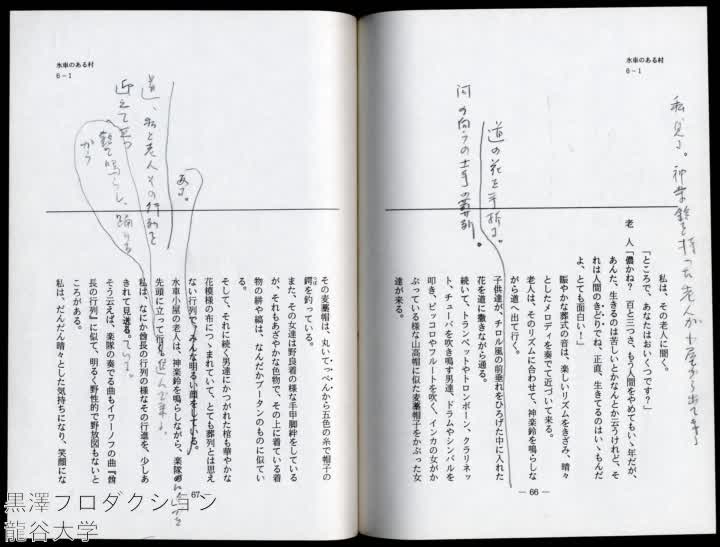 水車のある村
6－1
私は、その老人に聞く。
「ところで、あなたはおいくつです？」
老　人「儂かね？　百と三つさ、もう人間をやめてもいゝ年だが、
あんた、生きるのは苦しいとかなんとか云うけれど、そ
れは人間のきどりでね、正直、生きてるのはいゝもんだ
よ、とても面白い！」
賑やかな葬式の音は、楽しいリズムをきざみ、晴々
としたメロディを奏でて近づいて来る。
老人は、そのリズムに合わせて、神楽鈴を鳴らしな
がら道へ出て行く。
子供達が、チロル風の前垂れをひろげた中に入れた
花を道に撒きながら通る。
続いて、トランペットやトロンボーン、クラリネッ
ト、チューバを吹き鳴す男達、ドラムやシンバルを
叩き、ピッコロやフルートを吹く、インカの女がか
ぶっている様な山高帽に似た麦藁帽子をかぶった女
達が来る。
私、見る。神楽鈴を持った老人が小屋から出てくる
道の花を手折る。
川の向うの土手の葬列。
― 66 ―
水車のある村
6－1
その麦藁帽は、丸いてっぺんから五色の糸で帽子の
鍔を吊っている。
また、その女達は野良着の様な手甲脚絆をしている
が、それもあざやかな色物で、その上に着ている着
物の絣や縞は、なんだかブータンのものに似てい
る。
そして、それに続く男達にかつがれた棺も華やかな
花模様の布につゝまれていて、とても葬列とは思え
ない行列で、みんな明るい顔をしている。
水車小屋の老人は、神楽鈴を鳴らしながら、楽隊の
先頭に立って行く。
私は、なにか酋長の行列の様なその行進を、少しあ
きれて見送る。
そう云えば、楽隊の奏でる曲もイワーノフの『酋
長の行列』に似て、明るく野性的で野放図もないと
ころがある。
私は、だんだん晴々とした気持ちになり、笑顔にな
ある。
道、私と老人その行列を
迎えて立つ
鈴を鳴らし、踊りな
がら
進んで来る。
― 67 ―
黒澤プロダクション
龍谷大学